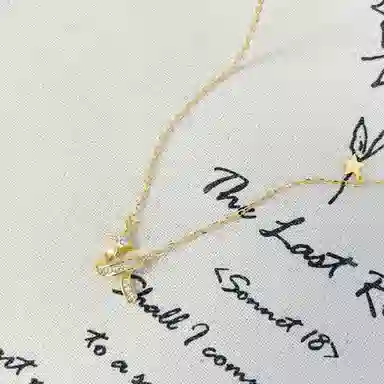 The Last R
<Sonnet 18>
Shall I com
to a s